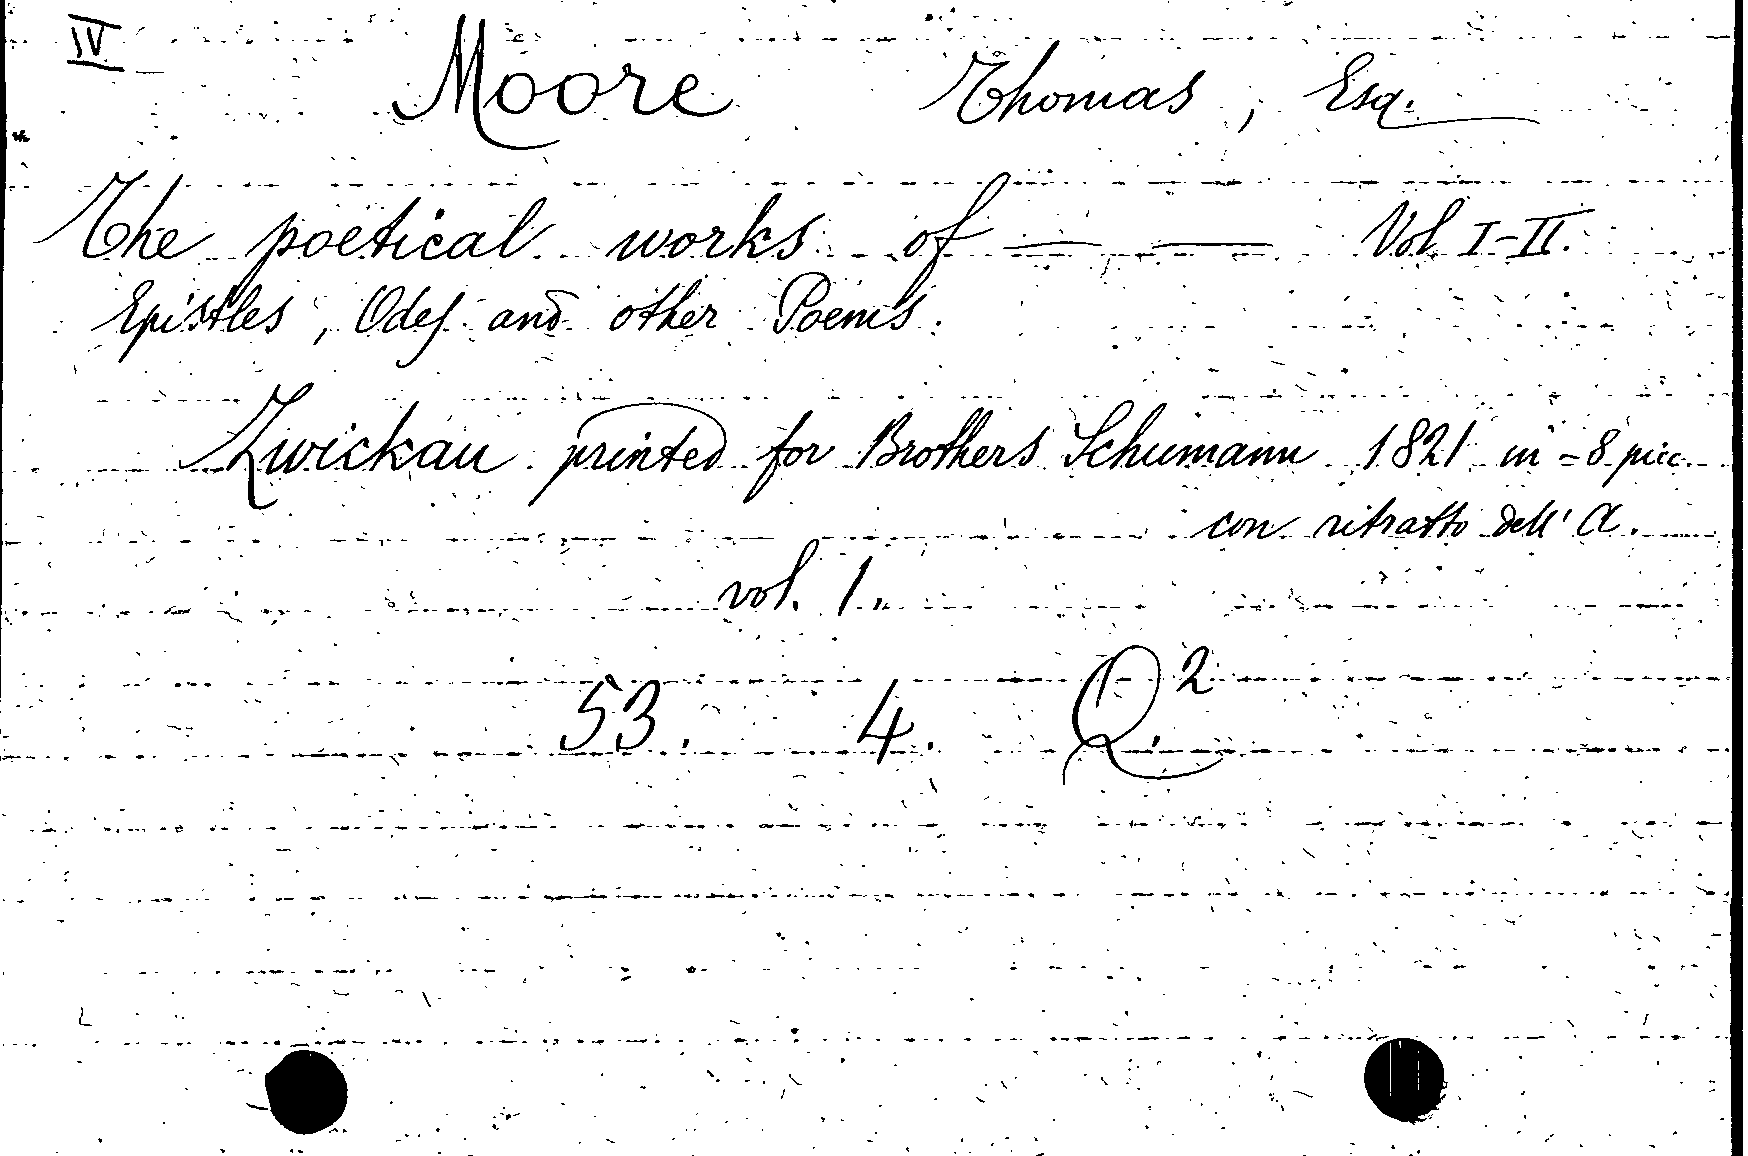 IV
Moore Thomas, Esq.
The poetical works of — — Vol I-II.
Epistles, Odes and other Poems.
Zwickau printed for Brothers Schumann 1821 in-8 picc.
con ritratto dell' A.
vol. 1.
53. 4. Q.2